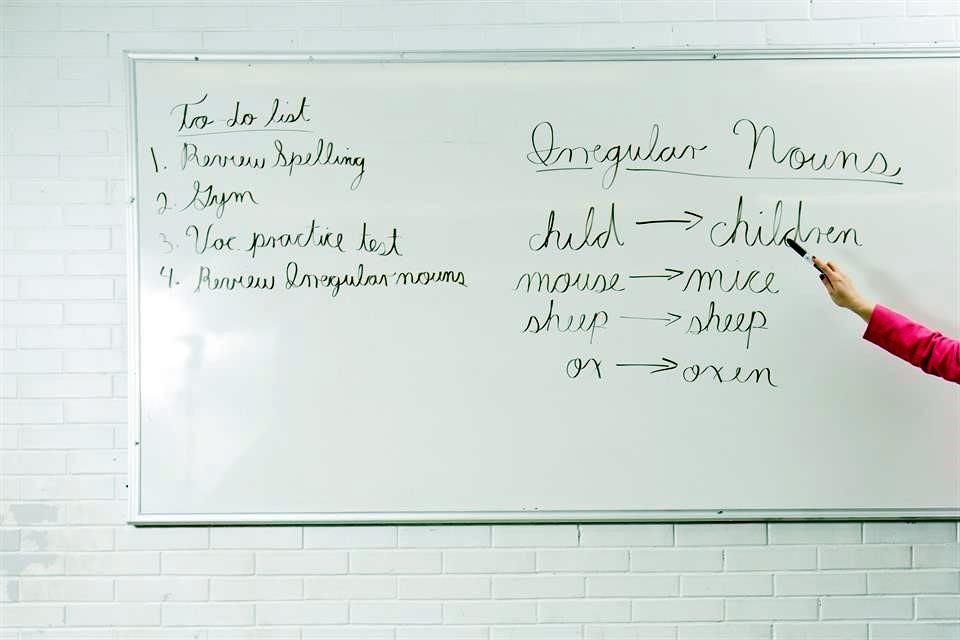 To-do list
1. Review Spelling
2. Gym
3. Voc. practice test
4. Review Irregular nouns
Irregular Nouns
child → children
mouse → mice
sheep → sheep
ox → oxen